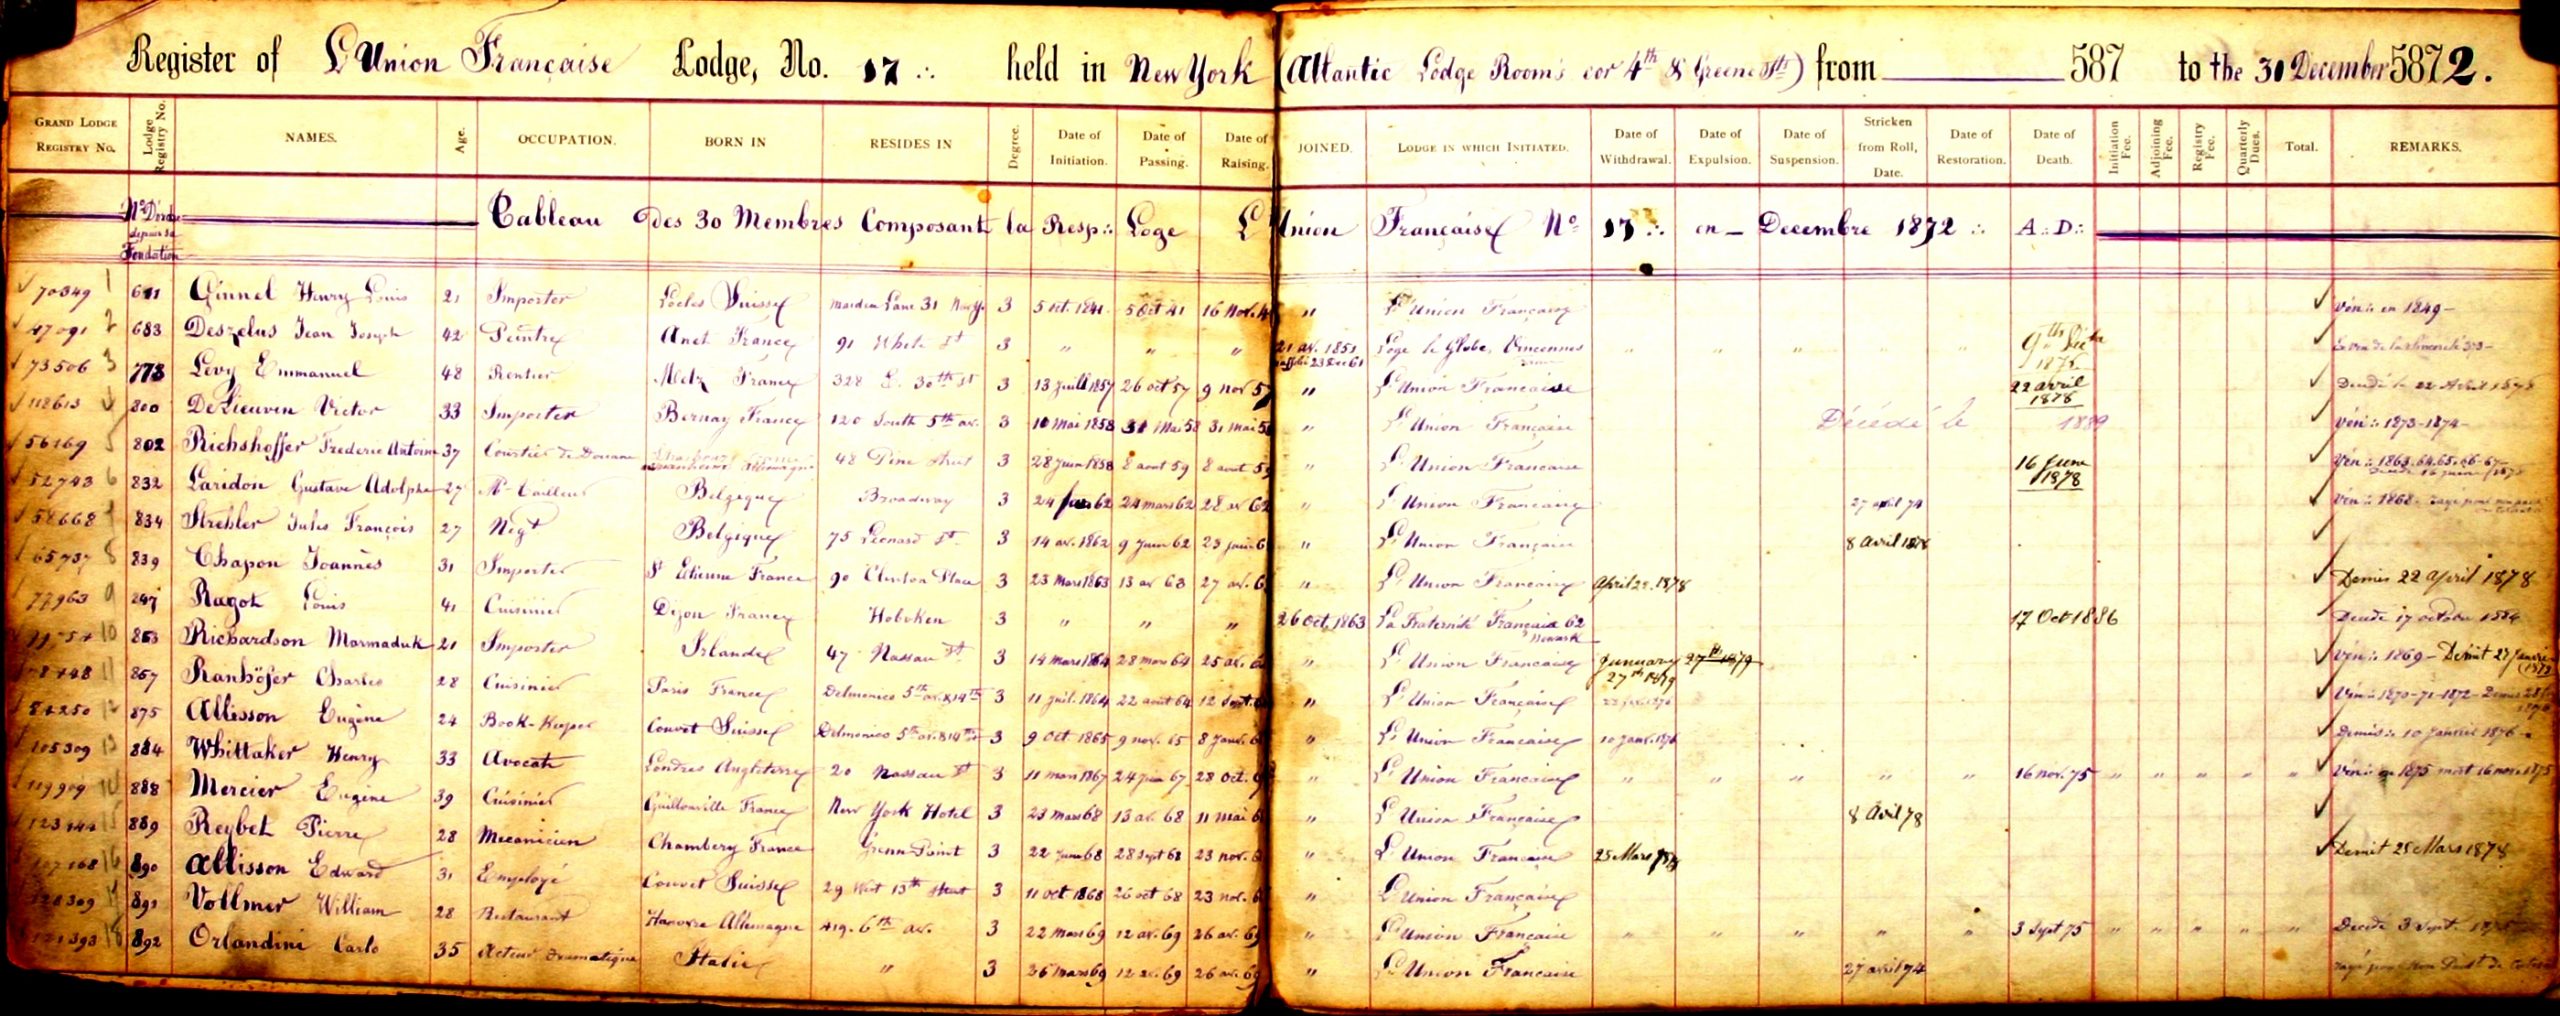 Register of L'Union Française Lodge, No. 17 ∴ held in New York (Atlantic Lodge Rooms cor 4th & Greene Sts) from 587 to the 30 December 5872.
GRAND LODGE REGISTRY No. Lodge Registry No. NAMES. Age. OCCUPATION. BORN IN RESIDES IN Degree. Date of Initiation. Date of Passing. Date of Raising. JOINED. LODGE IN WHICH INITIATED. Date of Withdrawal. Date of Expulsion. Date of Suspension. Stricken from Roll, Date. Date of Restoration. Date of Death. Initiation Fee. Adjoining Fee. Registry Fee. Quarterly Dues. Total. REMARKS.
No D'ordre depuis sa Fondation Tableau Des 30 Membres Composant la Resp∴ Loge L'Union Française No 17 ∴ en Decembre 1872 ∴ A∴D∴
70349 1 Ginnel Henry Louis 21 Importer Locles Suisse Maiden Lane 31 3 5 oct. 1841 5 Oct 41 16 Nov. " L'Union Française Vén∴ en 1849
47091 2 683 Deszelus Jean Joseph 42 Peintre Anet France 91 White St 3 " " " 21 av. 1851 Loge le Globe, Vincennes " " " " "
73506 3 773 Levy Emmanuel 48 Rentier Metz France 328 E. 30th St 3 13 Juill 1857 26 oct 57 9 nov 57 " L'Union Française 22 avril 1878 Decedé le 22 Avril 1878
4 800 DeLieuvin Victor 33 Importer Bernay France 120 South 5th av. 3 10 Mai 1858 31 Mai 58 31 mai 58 " L'Union Française Décédé le 1889 Vén∴ 1873-1874-
56169 5 802 Richshoffer Frederic Antoine 37 Courtier de Douane 48 Pine Street 3 28 Juin 1858 8 aout 59 8 aout 59 " L'Union Française 16 June 1878 Vén∴ 1863.64.65.66-67
52743 6 832 Laridon Gustave Adolphe 27 Md Tailleur Belgique Broadway 3 24 62 24 mars 62 28 av 62 " L'Union Française 27 april 74 Vén∴ 1868
58668 7 834 Strehler Jules François 27 Negt Belgique 75 Leonard St 3 14 av. 1862 9 Juin 62 23 juin 6 " L'Union Française 8 avril 1878
65737 8 839 Chapon Joannès 31 Importer St Etienne France 90 Clinton Place 3 23 Mars 1863 13 av 63 27 av. 6 " L'Union Française April 22. 1878 Demis 22 april 1878
77963 9 247 Ragot Louis 41 Cuisinier Dijon France Hoboken 3 " " " 26 oct. 1863 La Fraternité Française 62 Newark 17 Oct 1886
10 853 Richardson Marmaduk 21 Importer Irlande 47 Nassau St 3 14 mars 1864 28 mars 64 25 av. 6 " L'Union Française January 27th 1879 27th 1879 Vén∴ 1869 - Demit 27 Janvier 1879
11 857 Ranhöfer Charles 28 Cuisinier Paris France Delmonico 5th av. & 14th 3 11 juil. 1864 22 aout 64 12 Sept. " L'Union Française Vén∴ 1870-71-1872
84250 12 875 Allisson Eugène 24 Book-Keeper Couvet Suisse Delmonico 5th av. & 14th 3 9 Oct 1865 9 nov. 65 8 Janv. 6 " L'Union Française 10 Janv. 1876 Demis∴ 10 Janvier 1876
105309 13 884 Whittaker Henry 33 Avocat Londres Angleterre 20 Nassau St 3 11 mars 1867 24 Juin 67 28 Oct. " L'Union Française " " " " " 16 nov. 75 " " " " " Vén∴ en 1875 mort 16 nov. 1875
119909 14 888 Mercier Eugène 39 Cuisinier Guillonville France New York Hotel 3 23 mars 68 13 av. 68 11 mai 6 " L'Union Française 8 Avril 78
15 889 Reybet Pierre 28 Mecanicien Chambery France Green Point 3 22 June 68 28 Sept 68 23 nov. 6 " L'Union Française 25 Mars 1878 Demit 25 Mars 1878
107168 16 890 Allisson Edward 31 Employé Couvet Suisse 29 West 13th Street 3 11 oct 1868 26 oct 68 23 nov. 6 " L'Union Française
17 891 Vollmer William 28 Restaurant Hanovre Allemagne 419. 6th av. 3 22 Mars 69 12 av. 69 26 av. 69 " L'Union Française " " " " " 3 Sept 75 " " " " " Decedé 3 Sept.
121393 18 892 Orlandini Carlo 35 Acteur dramatique Italie " 3 26 mars 69 12 av. 69 26 av. 69 " L'Union Française 27 avril 74